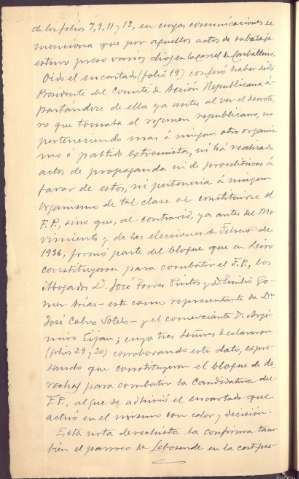 de los folios 7, 9, 11 y 12, en cuyas comunicaciones se
menciona que por aquellos actos de sabotaje
estuvo preso varios días en la carcel de Carballino.
Oido el encartado (folio 19) confesó haber sido
Presidente del Comité de Acción Republicana a-
partandose de ella ya antes al ver el derrote-
ro que tomaba el regimen republicano, no
perteneciendo mas a ningun otro organis-
mo o partido extremista, ni ha realizado
actos de propaganda ni de proselitismo a
favor de estos, ni pertenecia a ningun
organismo de tal clase al constituirse el
F.P., sino que, al contrario, ya antes del Mo-
vimiento y de las elecciones de Febrero de
1936, formó parte del bloque que en
constituyeron para combatir el F.P., los
Abogados D. José y D. Emilio Go-
mez Arias - este como representante de Dn
José Calvo Sotelo - y el comerciante D. Argi-
miro ; cuyos tres señores declararon
(folios 29 y 30) corroborando este dato, expre-
sando que constituyeron el bloque de de-
rechas para combatir la Candidatura del
F.P., al que se adhirió el encartado que
actuó en el mismo con calor y decisión.
Esta nota derechista la confirma tam-
bien el parroco de en la certifica-